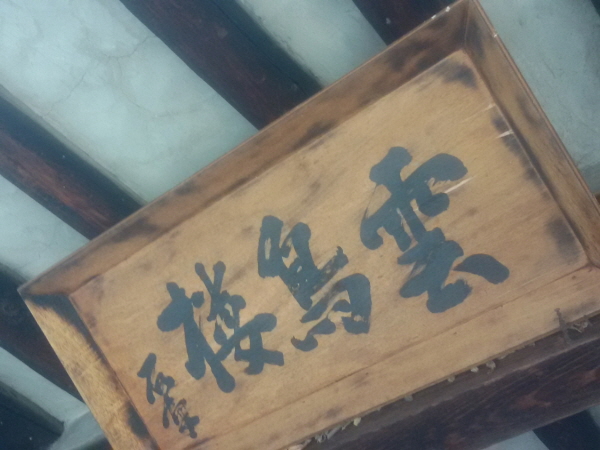 雲鳥樓